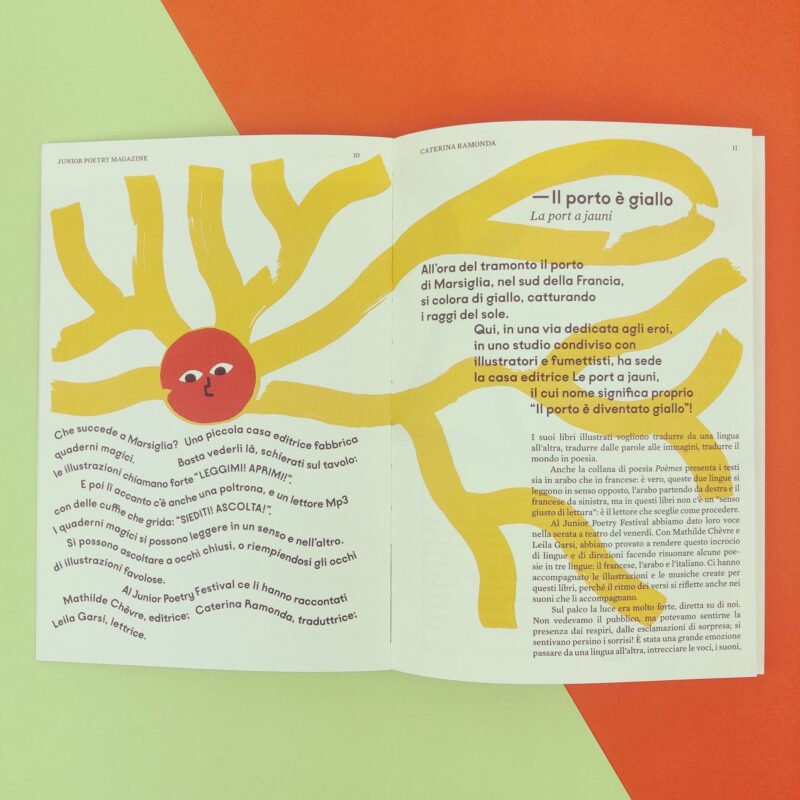 JUNIOR POETRY MAGAZINE
10
Che succede a Marsiglia? Una piccola casa editrice fabbrica
quaderni magici. Basta vederli là, schierati sul tavolo:
le illustrazioni chiamano forte “LEGGIMI! APRIMI!”.
E poi lì accanto c’è anche una poltrona, e un lettore Mp3
con delle cuffie che grida: “SIEDITI! ASCOLTA!”.
I quaderni magici si possono leggere in un senso e nell’altro.
Si possono ascoltare a occhi chiusi, o riempiendosi gli occhi
di illustrazioni favolose.
Al Junior Poetry Festival ce li hanno raccontati
Mathilde Chèvre, editrice; Caterina Ramonda, traduttrice;
Leila Garsi, lettrice.
CATERINA RAMONDA
11
—Il porto è giallo
La port a jauni
All’ora del tramonto il porto
di Marsiglia, nel sud della Francia,
si colora di giallo, catturando
i raggi del sole.
Qui, in una via dedicata agli eroi,
in uno studio condiviso con
illustratori e fumettisti, ha sede
la casa editrice Le port a jauni,
il cui nome significa proprio
“Il porto è diventato giallo”!
I suoi libri illustrati vogliono tradurre da una lingua
all’altra, tradurre dalle parole alle immagini, tradurre il
mondo in poesia.
Anche la collana di poesia Poèmes presenta i testi
sia in arabo che in francese: è vero, queste due lingue si
leggono in senso opposto, l’arabo partendo da destra e il
francese da sinistra, ma in questi libri non c’è un “senso
giusto di lettura”: è il lettore che sceglie come procedere.
Al Junior Poetry Festival abbiamo dato loro voce
nella serata a teatro del venerdì. Con Mathilde Chèvre e
Leila Garsi, abbiamo provato a rendere questo incrocio
di lingue e di direzioni facendo risuonare alcune poe-
sie in tre lingue: il francese, l’arabo e l’italiano. Ci hanno
accompagnato le illustrazioni e le musiche create per
questi libri, perché il ritmo dei versi si riflette anche nei
suoni che li accompagnano.
Sul palco la luce era molto forte, diretta su di noi.
Non vedevamo il pubblico, ma potevamo sentirne la
presenza dai respiri, dalle esclamazioni di sorpresa; si
sentivano persino i sorrisi! È stata una grande emozione
passare da una lingua all’altra, intrecciare le voci, i suoni,